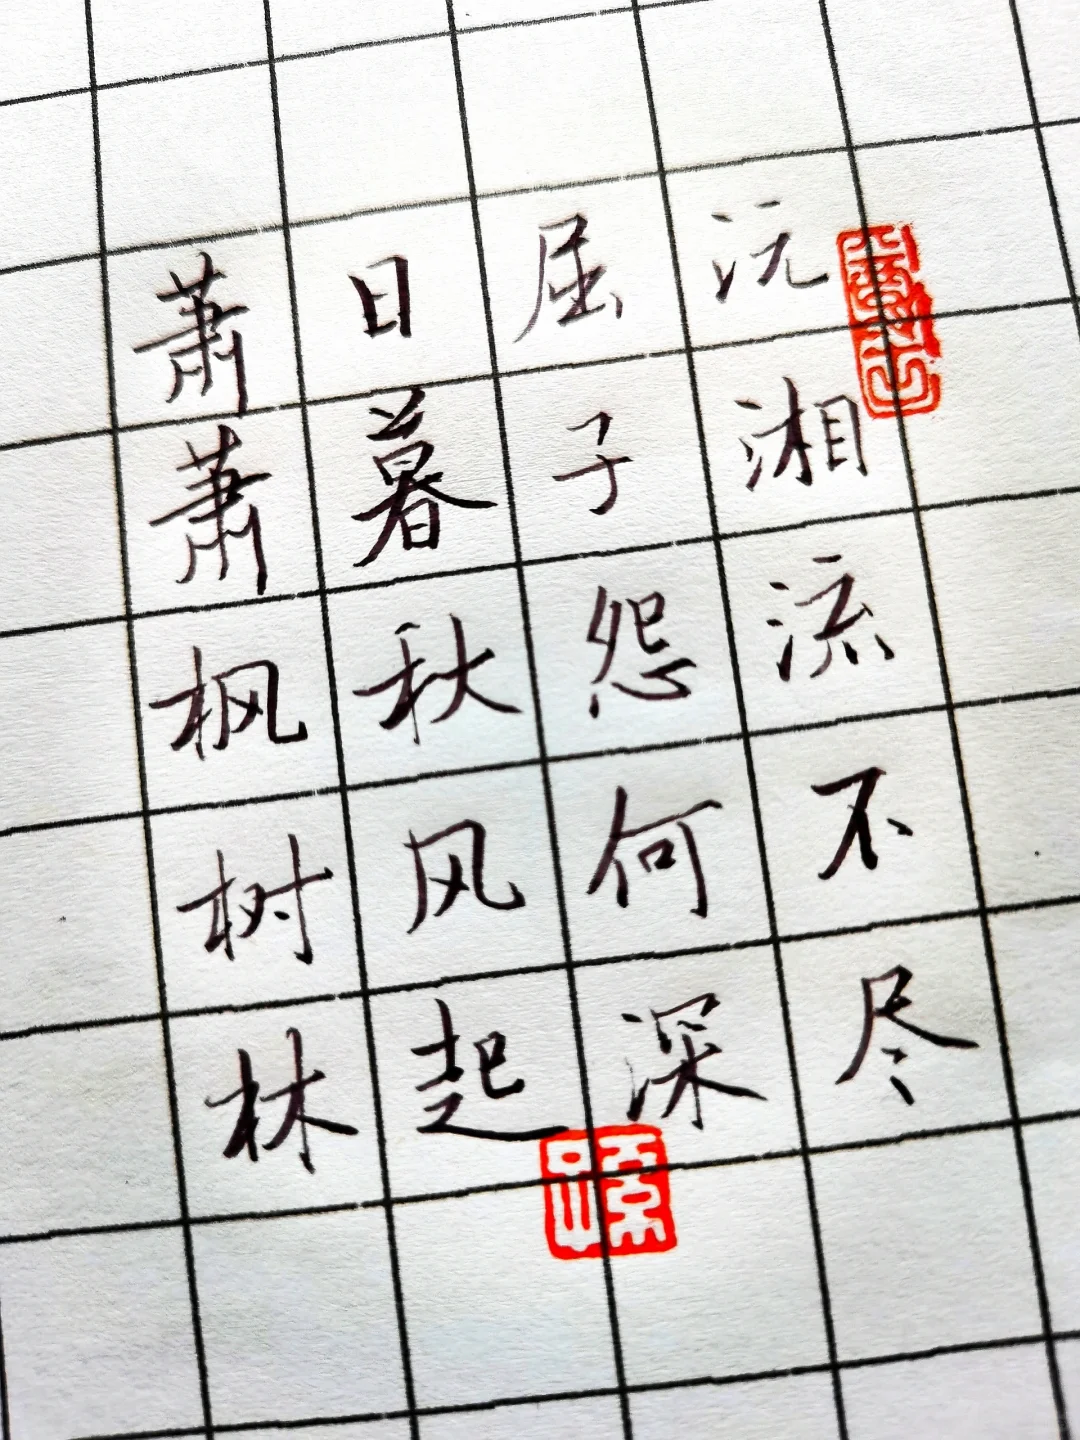 沅湘流不尽
屈子怨何深
日暮秋风起
萧萧枫树林